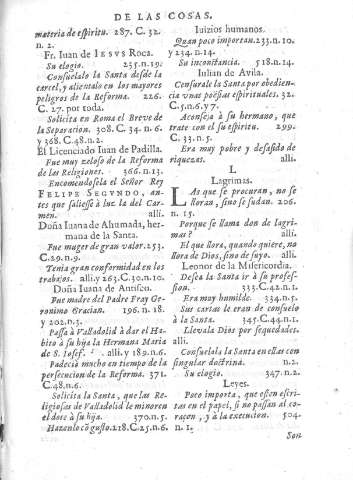 DE LAS COSAS.
materia de espiritu. 287. C. 32.
n. 2.
Fr. Iuan de IESVS Roca.
Su elogio. 235. n. 19.
Consuelalo la Santa desde la
carcel, y alientalo en los mayores
peligros de la Reforma. 226.
C. 27. por toda.
Solicita en Roma el Breve de
la Separacion. 308. C. 34. n. 6.
y 368. C. 48. n. 2.
El Licenciado Iuan de Padilla.
Fue muy zeloso de la Reforma
de las Religiones. 366. n. 13.
Encomendosela el Señor Rey
FELIPE SEGVNDO, an-
tes que saliesse à luz la del Car-
men. alli.
Doña Iuana de Ahumada, her-
mana de la Santa.
Fue muger de gran valor. 253.
C. 29. n. 9.
Tenia gran conformidad en los
trabajos. alli, y 263. C. 30. n. 10.
Doña Iuana de Antisco.
Fue madre del Padre Fray Ge-
ronimo Gracian. 196. n. 18.
y 202. n. 5.
Passa à Valladolid à dar el Ha-
bito à su hija la Hermana Maria
de S. Iosef. alli, y 189. n. 6.
Padeciò mucho en tiempo de la
persecucion de la Reforma. 371.
C. 48. n. 6.
Solicita la Santa, que las Re-
ligiosas de Valladolid le minoren
el dote à su hija. 370. n. 5.
Hazenlo cō gusto. 218. C. 25. n. 6.
Iuizios humanos.
Quan poco importan. 233. n. 10.
y 234. n. 14.
Su inconstancia. 518. n. 14.
Iulian de Avila.
Censurale la Santa por obedien-
cia vnas poësias espirituales. 32.
C. 5. n. 6. y 7.
Aconseja à su hermano, que
trate con el su espiritu. 299.
C. 33. n. 5.
Era muy pobre y desasido de
riquezas. alli.
L
Lagrimas.
LAs que se procuran, no se
lloran, sino se sudan. 206.
n. 15.
Porque se llama don de lagri-
mas? alli.
El que llora, quando quiere, no
llora de Dios, sino de suyo. alli.
Leonor de la Misericordia.
Desea la Santa ir à su profes-
sion. 333. C. 42. n. 1.
Era muy humilde. 334. n. 5.
Sus cartas le eran de consuelo
à la Santa. 345. C. 44. n. 1.
Llevala Dios por sequedades.
alli.
Consuelala la Santa en ellas con
singular doctrina. n. 2.
Su elogio. 347. n. 2.
Leyes.
Poco importa, que esten escri-
tas en el papel, si no passan al co-
raçon, y à la execucion. 504.
n. 1.
Son